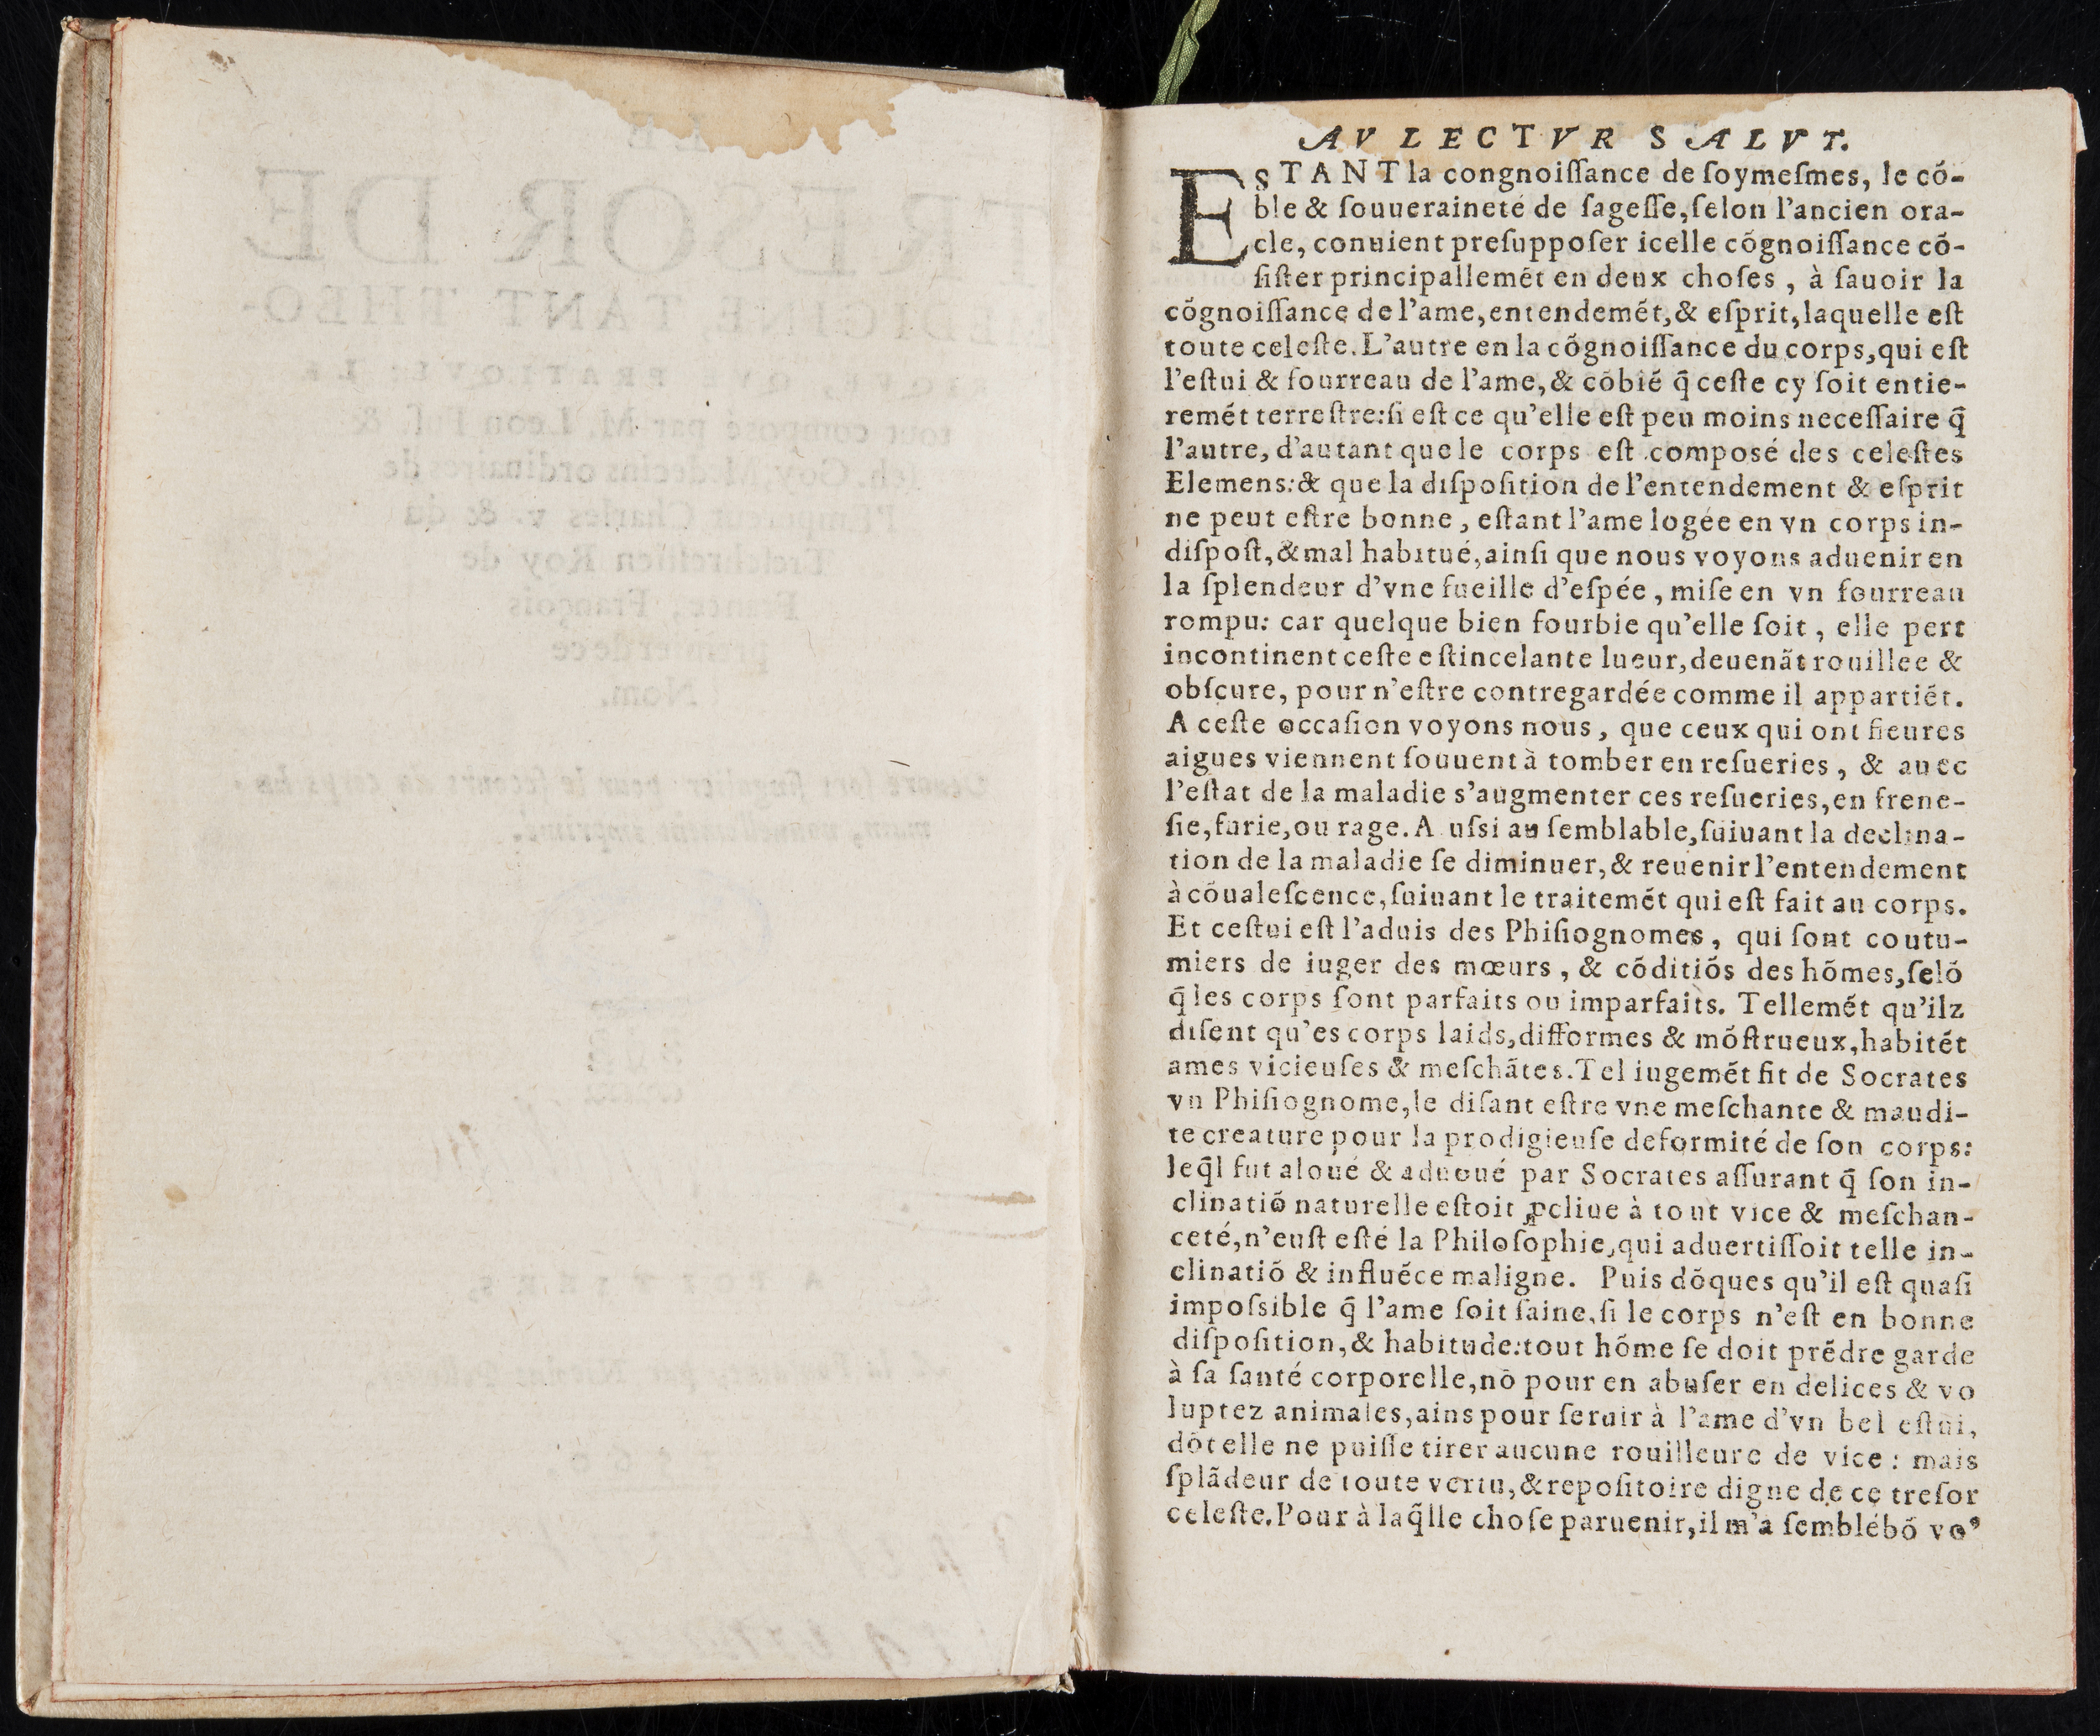 AV LECTVR SALVT.
ESTANT la congnoiſſance de ſoymeſmes, le cõ-
ble & ſouueraineté de ſageſſe, ſelon l'ancien ora-
cle, conuient preſuppoſer icelle cõgnoiſſance cõ-
ſiſter principallemẽt en deux choſes, à ſauoir la
cõgnoiſſance de l'ame, entendemẽt, & eſprit, laquelle eſt
toute celeſte. L'autre en la cõgnoiſſance du corps, qui eſt
l'eſtui & fourreau de l'ame, & cõbiẽ q̃ ceſte cy ſoit entie-
remẽt terreſtre: ſi eſt ce qu'elle eſt peu moins neceſſaire q̃
l'autre, d'autant que le corps eſt composé des celeſtes
Elemens: & que la diſpoſition de l'entendement & eſprit
ne peut eſtre bonne, eſtant l'ame logée en vn corps in-
diſpoſt, & mal habitué, ainſi que nous voyons aduenir en
la ſplendeur d'vne fueille d'eſpée, miſe en vn fourreau
rompu: car quelque bien fourbie qu'elle ſoit, elle pert
incontinent ceſte eſtincelante lueur, deuenãt rouillee &
obſcure, pour n'eſtre contregardée comme il appartiẽt.
A ceſte occaſion voyons nous, que ceux qui ont fieures
aigues viennent ſouuent à tomber en reſueries, & auec
l'eſtat de la maladie s'augmenter ces reſueries, en frene-
ſie, furie, ou rage. Auſsi au ſemblable, ſuiuant la declina-
tion de la maladie ſe diminuer, & reuenir l'entendement
à cõualeſcence, ſuiuant le traitemẽt qui eſt fait au corps.
Et ceſtui eſt l'aduis des Phiſiognomes, qui ſont coutu-
miers de iuger des mœurs, & cõditiõs des hõmes, ſelõ
q̃ les corps ſont parfaits ou imparfaits. Tellemẽt qu'ilz
diſent qu'es corps laids, difformes & mõſtrueux, habitẽt
ames vicieuſes & meſchãtes. Tel iugemẽt fit de Socrates
vn Phiſiognome, le diſant eſtre vne meſchante & maudi-
te creature pour la prodigieuſe deformité de ſon corps:
leq̃l fut aloué & aduoué par Socrates aſſurant q̃ ſon in-
clinatiõ naturelle eſtoit ꝓcliue à tout vice & meſchan-
ceté, n'euſt eſté la Philoſophie, qui aduertiſſoit telle in-
clinatiõ & influẽce maligne. Puis dõques qu'il eſt quaſi
impoſsible q̃ l'ame ſoit ſaine, ſi le corps n'eſt en bonne
diſpoſition, & habitude: tout hõme ſe doit prẽdre garde
à ſa ſanté corporelle, nõ pour en abuſer en delices & vo
luptez animales, ains pour ſeruir à l'ame d'vn bel eſtui,
dõt elle ne puiſſe tirer aucune rouilleure de vice: mais
ſplãdeur de toute vertu, & repoſitoire digne de ce treſor
celeſte. Pour à laq̃lle choſe paruenir, il m'a ſemblé bõ vo⁹